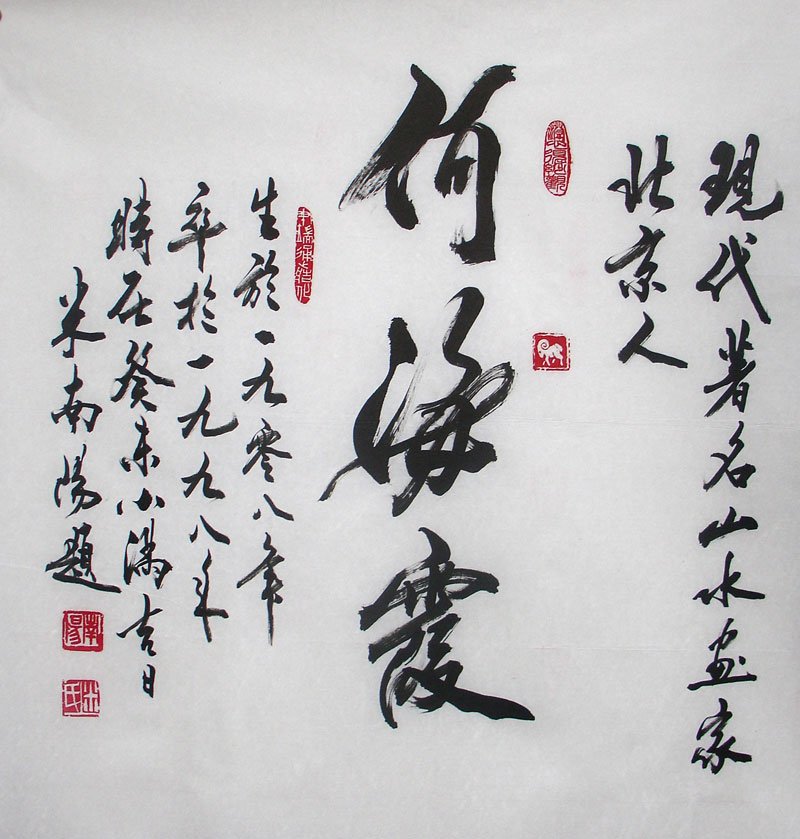 現代著名山水画家
北京人
何海霞
生於一九零八年
卒於一九九八年
時在癸未小滿吉日
米南陽題
南陽
米氏